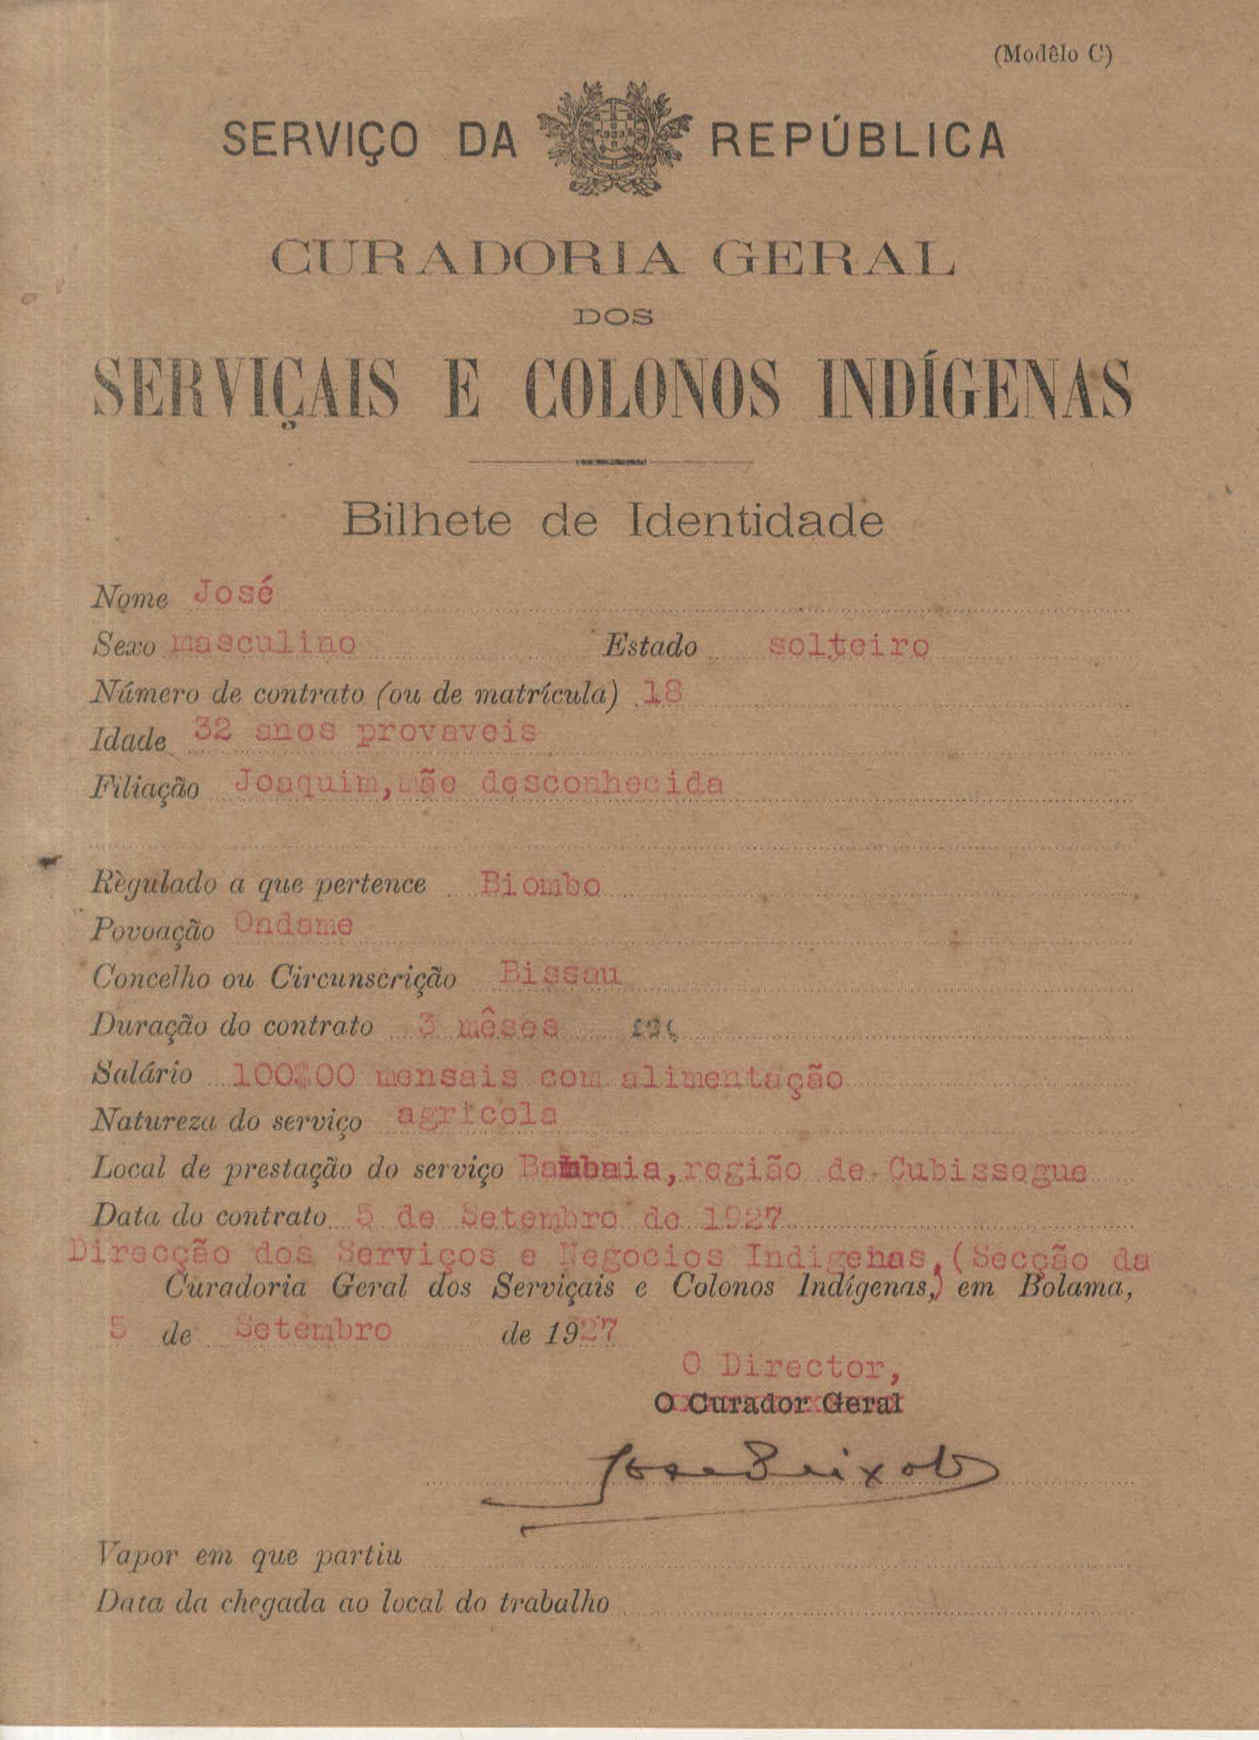 (Modêlo C)
SERVIÇO DA REPÚBLICA
CURADORIA GERAL
DOS
SERVIÇAIS E COLONOS INDÍGENAS
Bilhete de Identidade
Nome José
Sexo masculino Estado solteiro
Número de contrato (ou de matrícula) 18
Idade 32 anos provaveis
Filiação Joaquim, mãe desconhecida
Règulado a que pertence Biombo
Povoação Ondame
Concelho ou Circunscrição Bissau
Duração do contrato 3 mêses
Salário 100$00 mensais com alimentação
Natureza do serviço agricola
Local de prestação do serviço Bambaia, região de Cubissegue
Data do contrato 5 de Setembro de 1927
Direcção dos Serviços e Negocios Indigenas, (Secção da
Curadoria Geral dos Serviçais e Colonos Indígenas,) em Bolama,
5 de Setembro de 1927
O Director,
O Curador Geral
Jose Peixoto
Vapor em que partiu
Data da chegada ao local do trabalho